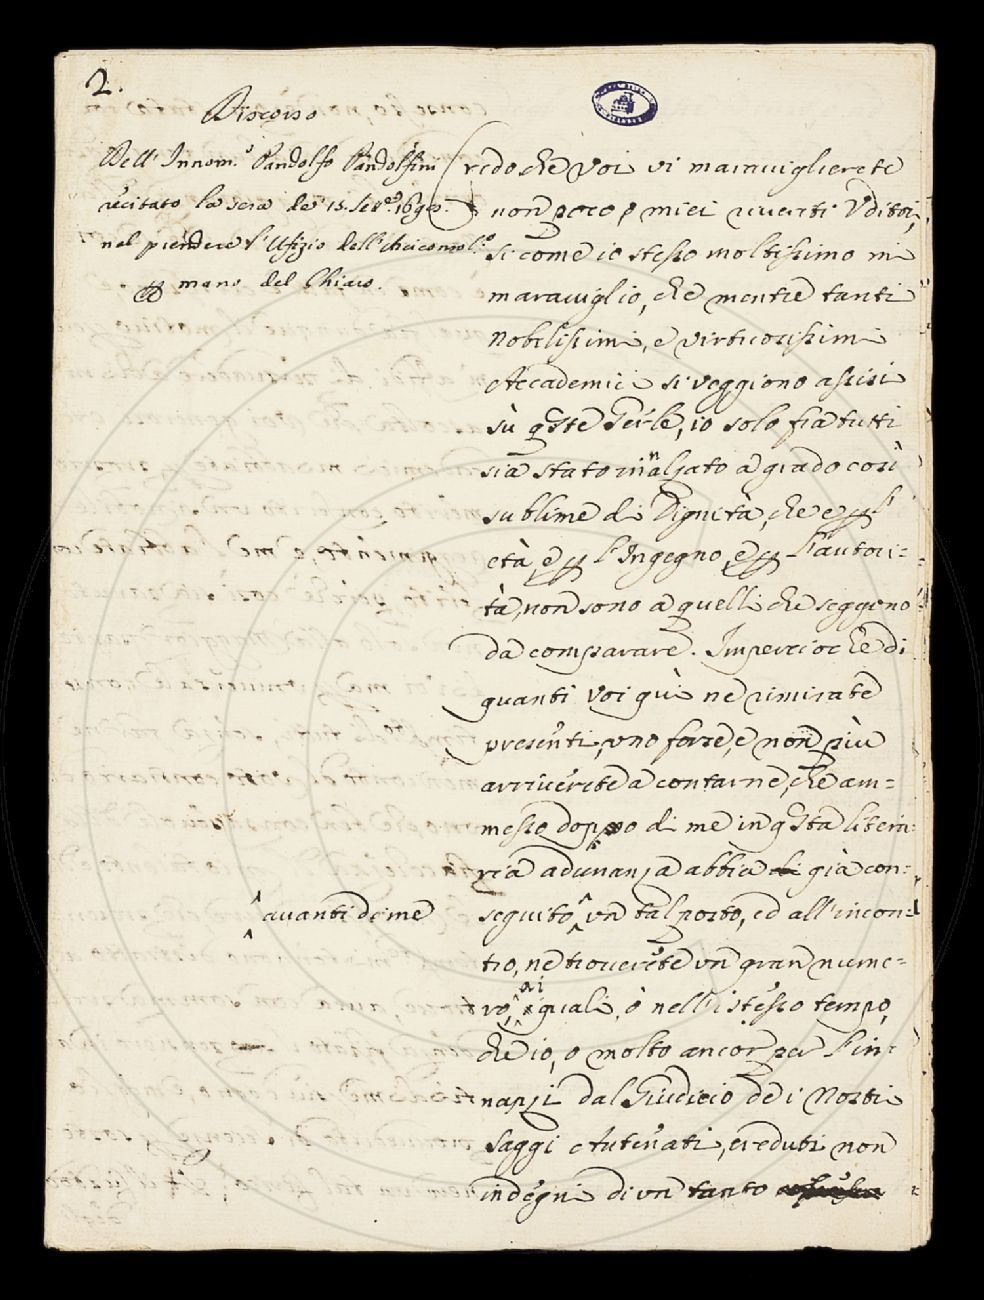 2.
Discorso
Dell' Innom.º Pandolfo Pandolfini
recitato la sera de' 15 Set.re
nel prendere l'Ufizio dell' Arciconsol.º
p mano del Chiaro.
Credo che Voi vi maraviglierete
non poco p miei riveriti Vditori,
si come io stesso moltissimo mi
maraviglio, che mentre tanti
Nobilissimi, e virtuosissimi
Accademici si veggiono assisi
sù qste Gerle, io solo fra tutti
sia stato innalzato a grado così
sublime di Dignità, che e p l'
età, e p l'Ingegno, e p l'autori=
tà, non sono a quelli che seggono
da comparare. Impercioche di
quanti Voi quì ne rimirate
presenti, uno forse, e non più
arriverete a contarne, che am=
messo doppo di me in qsta litera=
ria adunanza abbia già con=
seguito vn tal posto, ed all'incon=
avanti di me
tro, ne troverete vn gran nume=
ro, ai quali, ò nell'istesso tempo,
che io, o molto ancor per l'in=
nanzi dal Giudicio de i Nostri
Saggi Antenati, creduti non
indegni di vn tanto